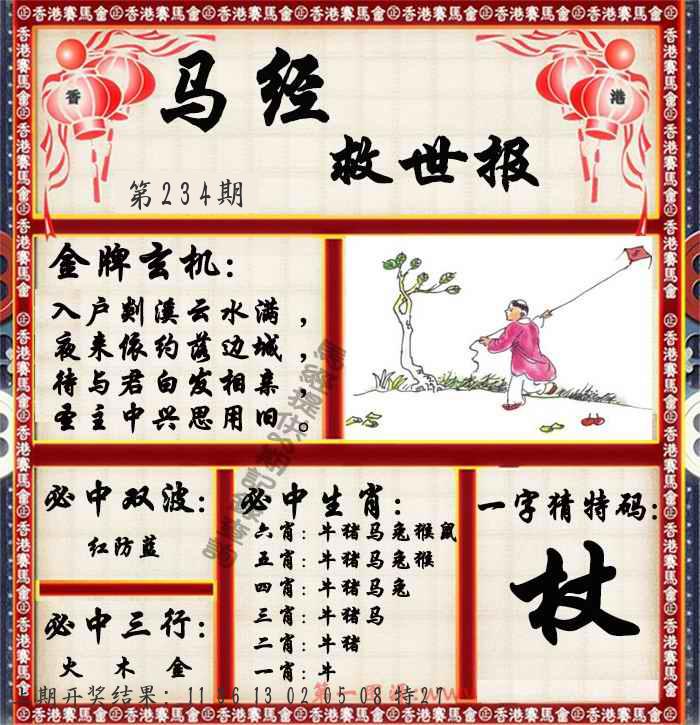 香港賽馬會
香
港
马经
救世报
第234期
金牌玄机：
入户剡溪云水满，
夜来依约落边城，
待与君白发相亲，
圣主中兴思用旧。
必中双波：
红防蓝
必中三行：
火 木 金
必中生肖：
六肖：牛猪马兔猴鼠
五肖：牛猪马兔猴
四肖：牛猪马兔
三肖：牛猪马
二肖：牛猪
一肖：牛
一字猜特码：
杖
期开奖结果：11 36 13 02 05 08 特27